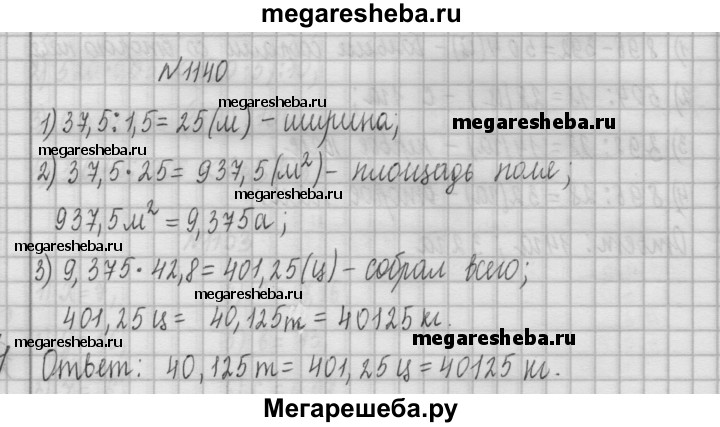 megaresheba.ru
N 1140
megaresheba.ru
1) 37,5 : 1,5 = 25 (м) - ширина;
megaresheba.ru
megaresheba.ru
2) 37,5 · 25 = 937,5 (м²) - площадь поля;
megaresheba.ru
937,5 м² = 9,375 а;
megaresheba.ru
3) 9,375 · 42,8 = 401,25 (ц) - собрал всего;
megaresheba.ru
401,25 ц = 40,125 т = 40125 кг.
megaresheba.ru
megaresheba.ru
Ответ: 40,125 т = 401,25 ц = 40125 кг.
megaresheba.ru
Мегарешеба.ру